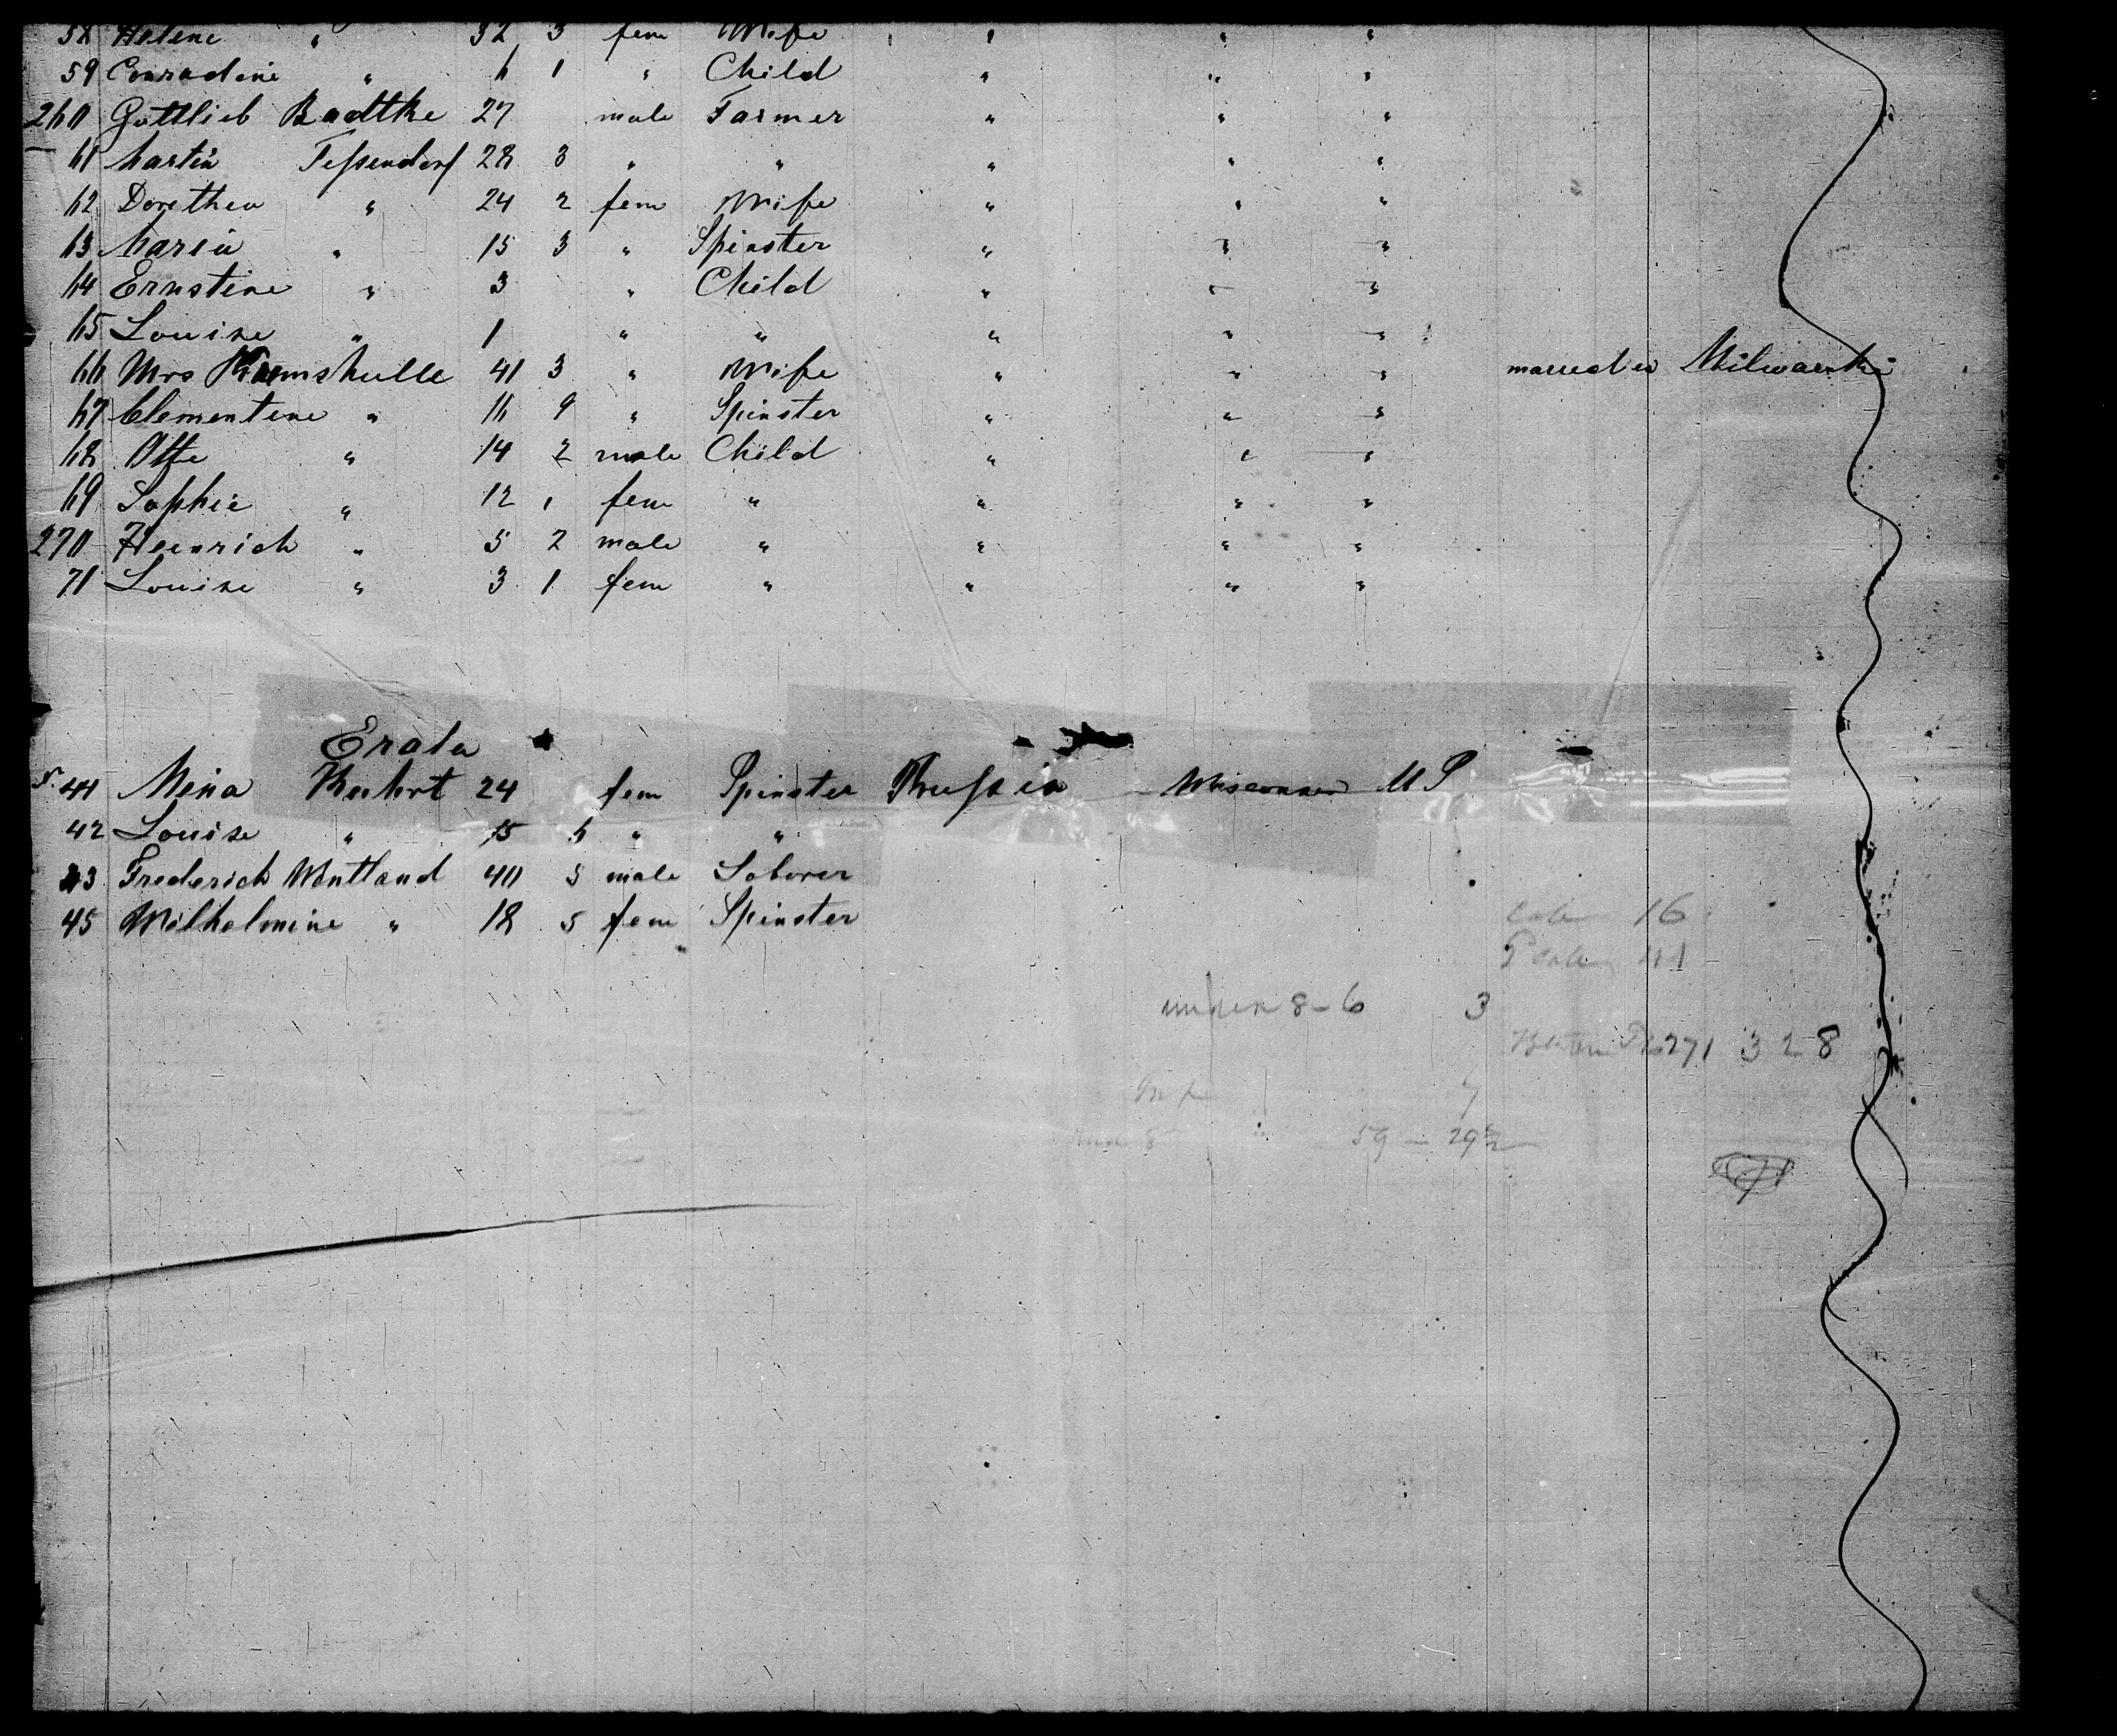 58 Helene " 32 3 fem Wife " " "
59 Conradine " 6 1 " Child " " "
260 Gottlieb Radttke 27 male Farmer " " "
61 Martin Teßendorf 28 3 " " " " "
62 Dorothea " 24 2 fem Wife " " "
63 Maria " 15 3 " Spinster " " "
64 Ernstine " 3 " Child " " "
65 Louise " 1 " " " " "
66 Mrs 41 3 " Wife " " " married in Milwaukie
67 Clementine " 16 9 " Spinster " " "
68 Otto " 14 2 male Child " " "
69 Sophie " 12 1 fem " " " "
270 Heinrich " 5 2 male " " " "
71 Louise " 3 1 fem " " " "
Erata
41 Mina 24 fem Spinster Prußia Wisconsin
42 Louise " 15 6 " "
43 Frederich Wentland 40 5 male Laborer
45 Wilhelmine " 18 5 fem Spinster
16
41
8 - 6 3
271 328
59 - 29½